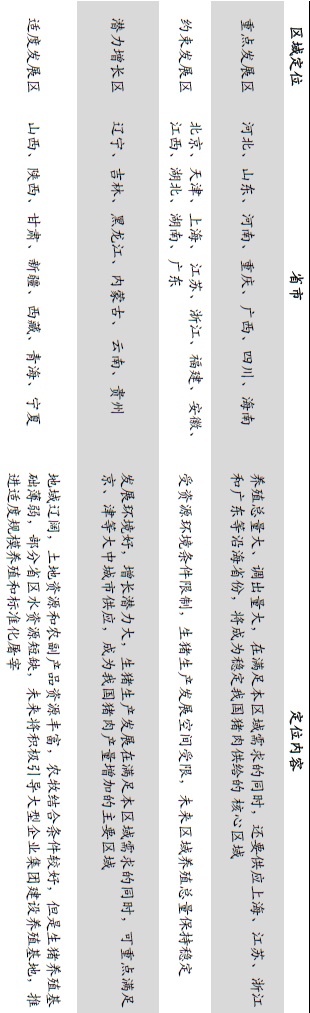 区域定位 省市 定位内容
重点发展区 河北、山东、河南、重庆、广西、四川、海南 养殖总量大、调出量大，在满足本区域需求的同时，还要供应上海、江苏、浙江
和广东等沿海省份，将成为稳定我国猪肉供给的核心区域
约束发展区 北京、天津、上海、江苏、浙江、福建、安徽、
江西、湖北、湖南、广东
受资源环境条件限制，生猪生产发展空间受限，未来区域养殖总量保持稳定
潜力增长区 辽宁、吉林、黑龙江、内蒙古、云南、贵州 发展环境好，增长潜力大，生猪生产发展在满足本区域需求的同时，可重点满足
京、津等大中城市供应，成为我国猪肉产量增加的主要区域
适度发展区 山西、陕西、甘肃、新疆、西藏、青海、宁夏 地域辽阔，土地资源和农副产品资源丰富，农牧结合条件较好，但是生猪养殖基
础薄弱，部分省区水资源短缺，未来将积极引导大型企业集团建设养殖基地，推
进适度规模养殖和标准化屠宰